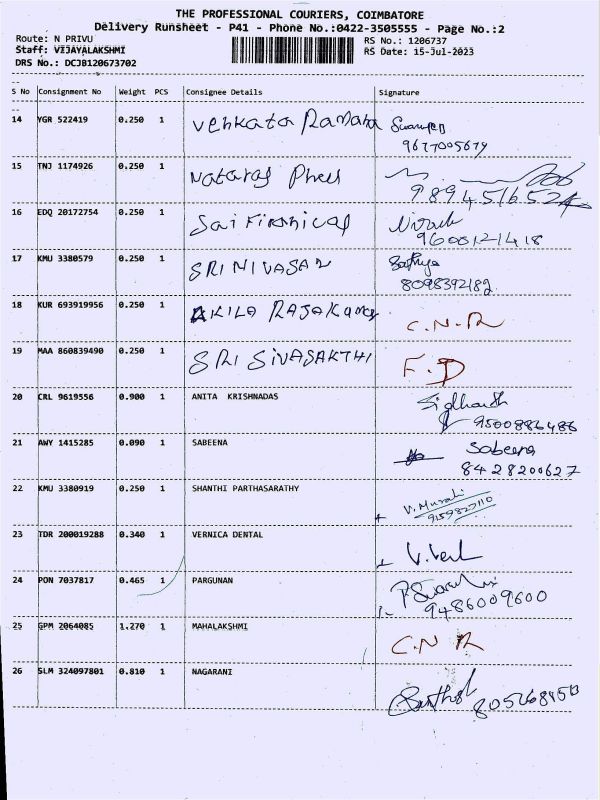 THE PROFESSIONAL COURIERS, COIMBATORE
Delivery Runsheet - P41 - Phone No.:0422-3505555 - Page No.:2
Route: N PRIVU
RS No.: 1206737
Staff: VIJAYALAKSHMI
RS Date: 15-Jul-2023
DRS No.: DCJB120673702
S No Consignment No Weight PCS Consignee Details Signature
14 YGR 522419 0.250 1 Venkata Ramana
9677005679
15 TNJ 1174926 0.250 1 Nataraj
16 EDQ 20172754 0.250 1 Sai
9600121418
17 KMU 3380579 0.250 1 SRINIVASAN Sathya
8098392182
18 KUR 693919956 0.250 1 AKILA C.N.R
19 MAA 860839490 0.250 1 SRI SIVASAKTHI F.D
20 CRL 9619556 0.900 1 ANITA KRISHNADAS Sidharth
9500886486
21 AWY 1415285 0.090 1 SABEENA Sabeena
8428200627
22 KMU 3380919 0.250 1 SHANTHI PARTHASARATHY V. Murali
9159827110
23 TDR 200019288 0.340 1 VERNICA DENTAL
24 PON 7037817 0.465 1 PARGUNAN
9486009600
25 GPM 2064085 1.270 1 MAHALAKSHMI C.N R
26 SLM 324097801 0.810 1 NAGARANI